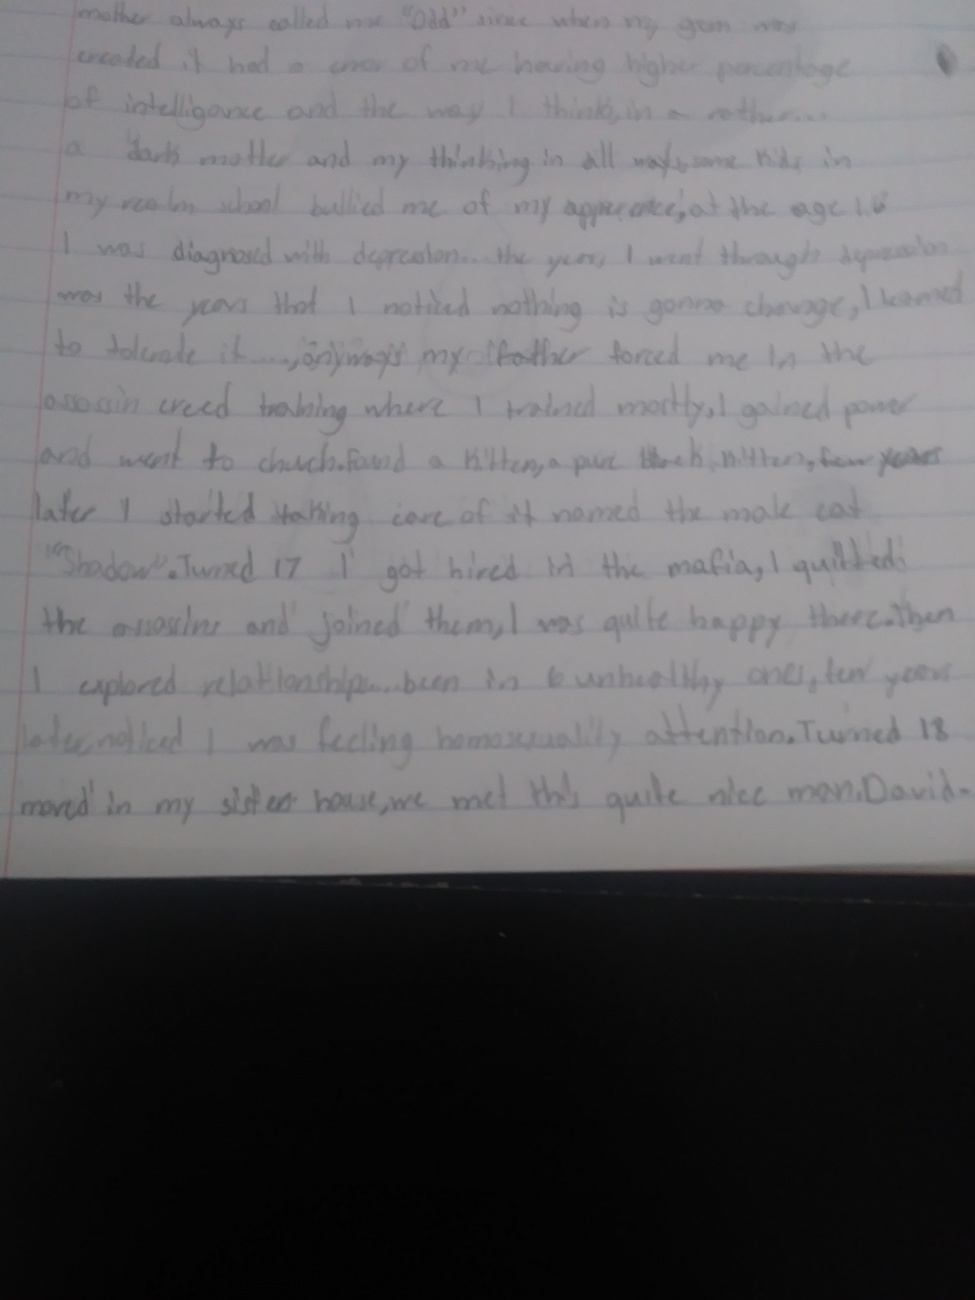 mother always called me "Odd" since when my gem was
created it had a error of me having higher percentage
of intelligance and the way I think, in a rather...
a dark matter and my thinking in all ways, some kids in
my realm school bullied me of my apperence, at the age 16
I was diagnosed with depression... the years I went through depression
was the years that I noticed nothing is gonna change, I learned
to tolerate it ...., anyways my father forced me in the
assassin creed training where I trained mostly, I gained power
and went to church. Found a kitten, a pure black kitten, few years
later I started taking care of it named the male cat
"Shadow". Turned 17 I got hired in the mafia, I quitted
the assassins and joined them, I was quite happy there. Then
I explored relationships... been in 6 unhealthy ones, few years
later, noticed I was feeling homosexuality attention. Turned 18
moved in my sister house, we met this quite nice man. David-